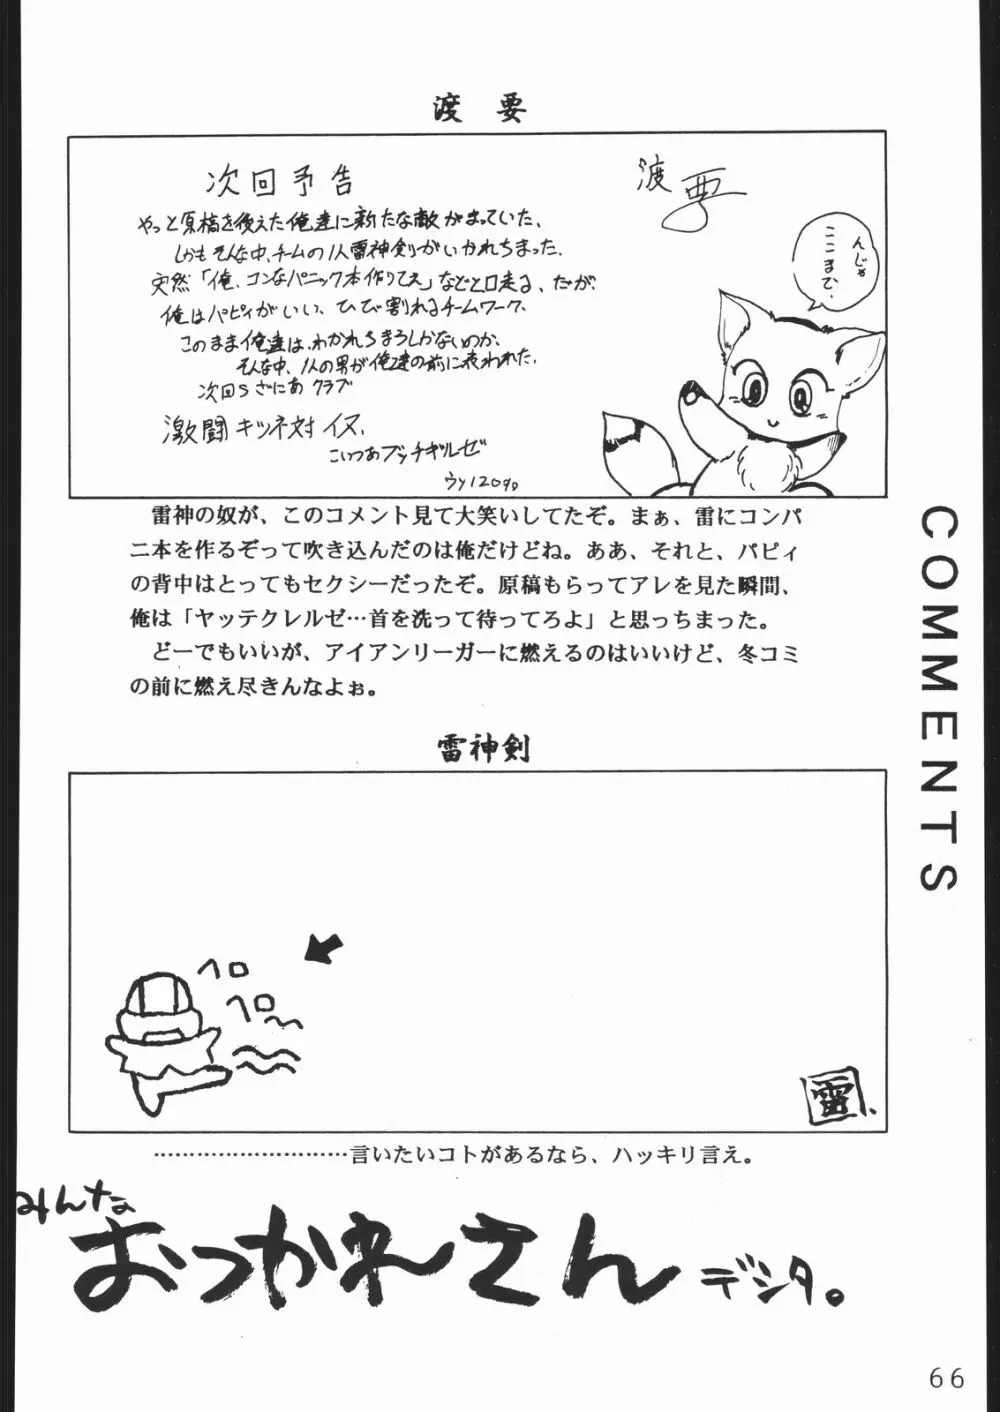 渡 要
次回予告
渡 要
やっと原稿を終えた俺達に新たな敵がまっていた、
しかも そんな中、チームの1人雷神剣がいかれちまった。
突然「俺、コンなパニック本作りてぇ」などと口走る、だが、
俺はパピィがいい、ひび割れるチームワーク、
このまま俺達は、わかれちまうしかないのか、
そんな中、1人の男が俺達の前に表われた。
次回Sざにあ クラブ
激闘 キツネ対 イヌ、
こいつあブッチギルゼ
んじゃ
ここまで、
雷神の奴が、このコメント見て大笑いしてたぞ。まぁ、雷にコンパ
ニ本を作るぞって吹き込んだのは俺だけどね。ああ、それと、パピィ
の背中はとってもセクシーだったぞ。原稿もらってアレを見た瞬間、
俺は「ヤッテクレルゼ…首を洗って待ってろよ」と思っちまった。
どーでもいいが、アイアンリーガーに燃えるのはいいけど、冬コミ
の前に燃え尽きんなよぉ。
COMMENTS
雷神剣
ヘロ
ヘロ
雷
………………………言いたいコトがあるなら、ハッキリ言え。
みんな
おつかれさん デシタ。
66